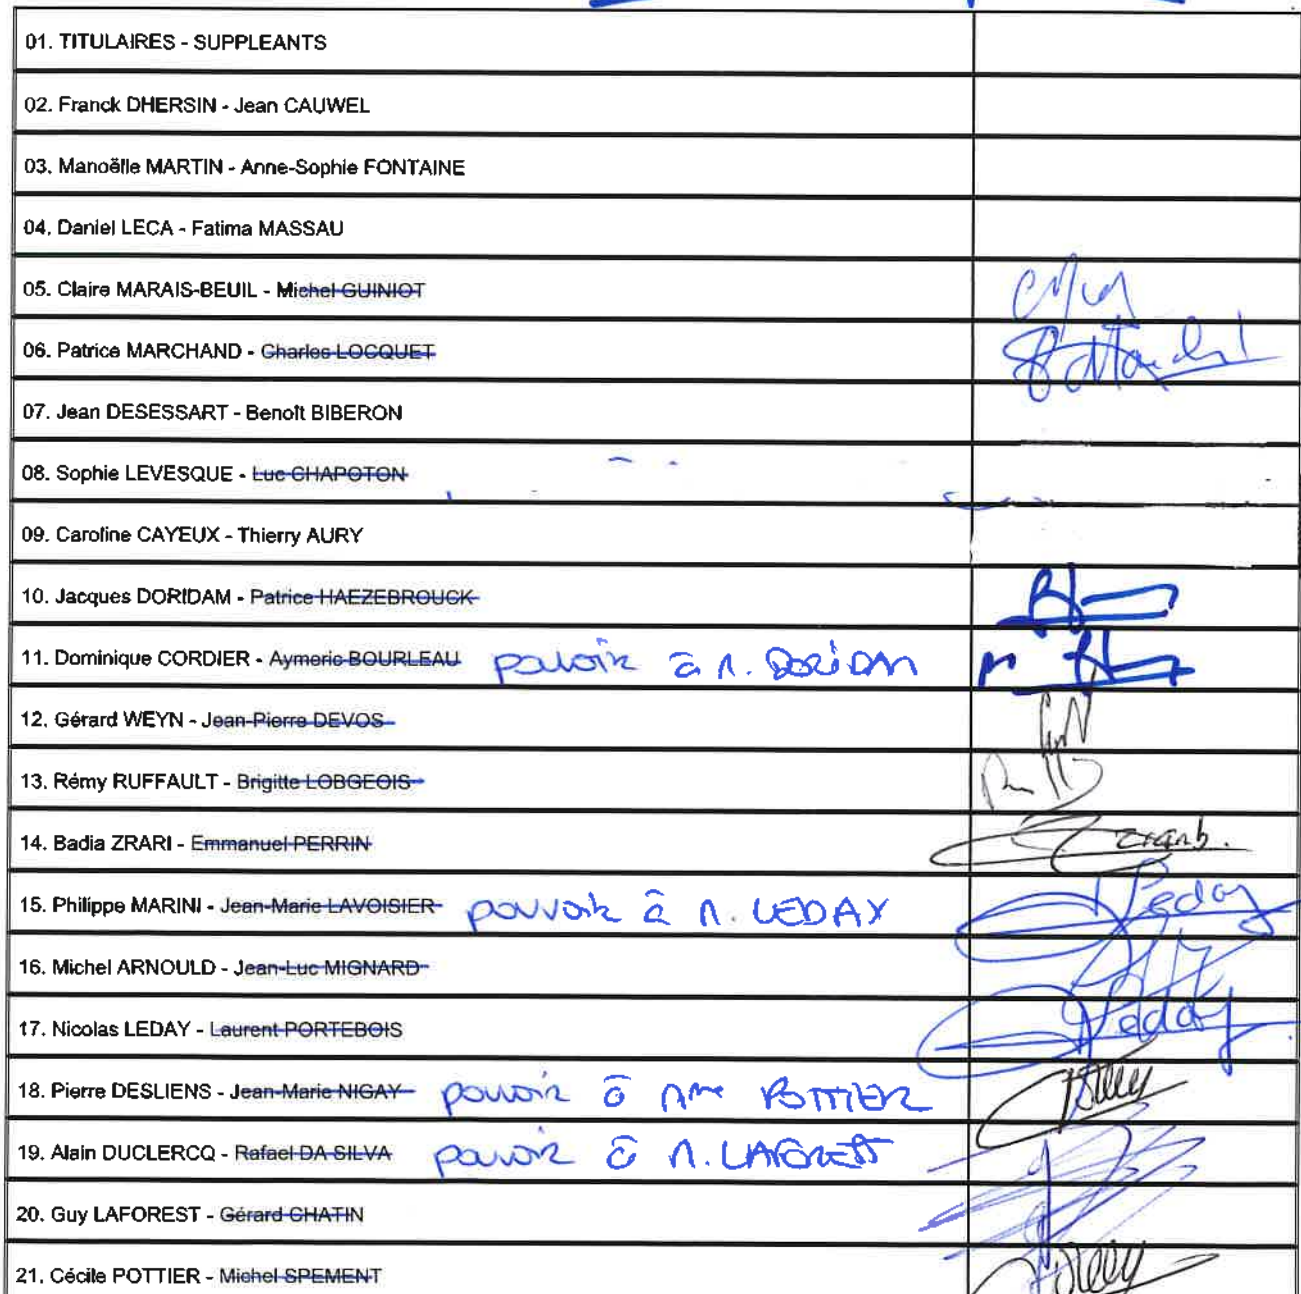 01. TITULAIRES - SUPPLEANTS
02. Franck DHERSIN - Jean CAUWEL
03. Manoëlle MARTIN - Anne-Sophie FONTAINE
04. Daniel LECA - Fatima MASSAU
05. Claire MARAIS-BEUIL - Michel GUINIOT
06. Patrice MARCHAND - Charles LOCQUET
07. Jean DESESSART - Benoît BIBERON
08. Sophie LEVESQUE - Luc CHAPOTON
09. Caroline CAYEUX - Thierry AURY
10. Jacques DORIDAM - Patrice HAEZEBROUCK
11. Dominique CORDIER - Aymeric BOURLEAU pouvoir à M. DORIDAM
12. Gérard WEYN - Jean-Pierre DEVOS
13. Rémy RUFFAULT - Brigitte LOBGEOIS
14. Badia ZRARI - Emmanuel PERRIN
15. Philippe MARINI - Jean-Marie LAVOISIER pouvoir à M. LEDAY Leday
16. Michel ARNOULD - Jean-Luc MIGNARD
17. Nicolas LEDAY - Laurent PORTEBOIS Leday
18. Pierre DESLIENS - Jean-Marie NIGAY pouvoir à Mme POTTIER
19. Alain DUCLERCQ - Rafael DA SILVA pouvoir à M. LAFOREST
20. Guy LAFOREST - Gérard CHATIN
21. Cécile POTTIER - Michel SPEMENT